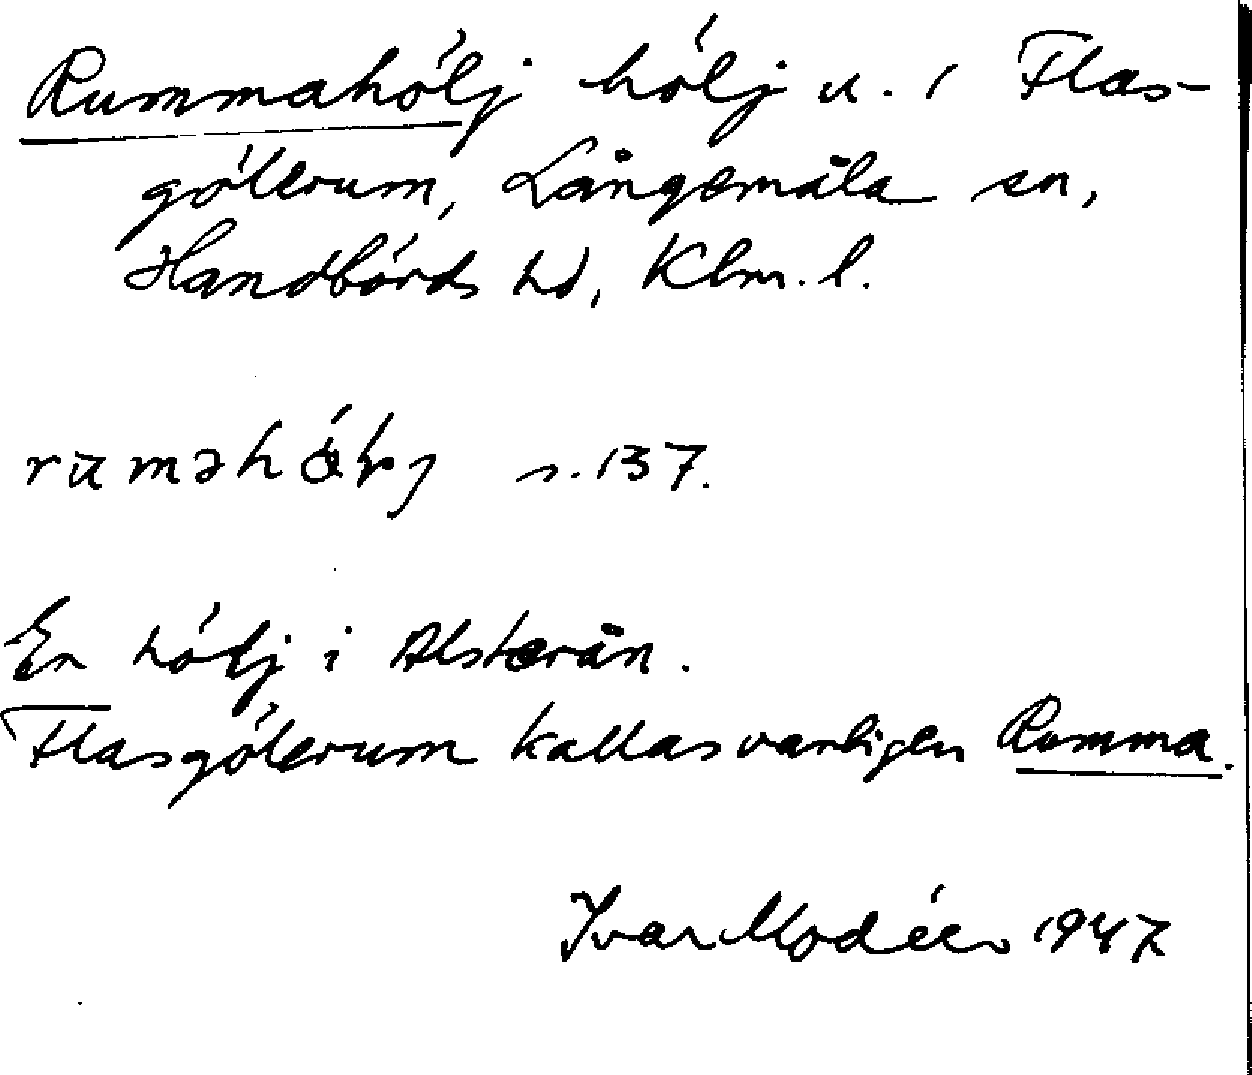 Rummahölj hölj u. i Flas-
gölerum, Långemåla sn,
Handbörds hd, Klm. l.
s. 137.
En hölj i Alsterån.
Flasgölerum kallas vanligen Rumma.
Ivar Modéer 1947